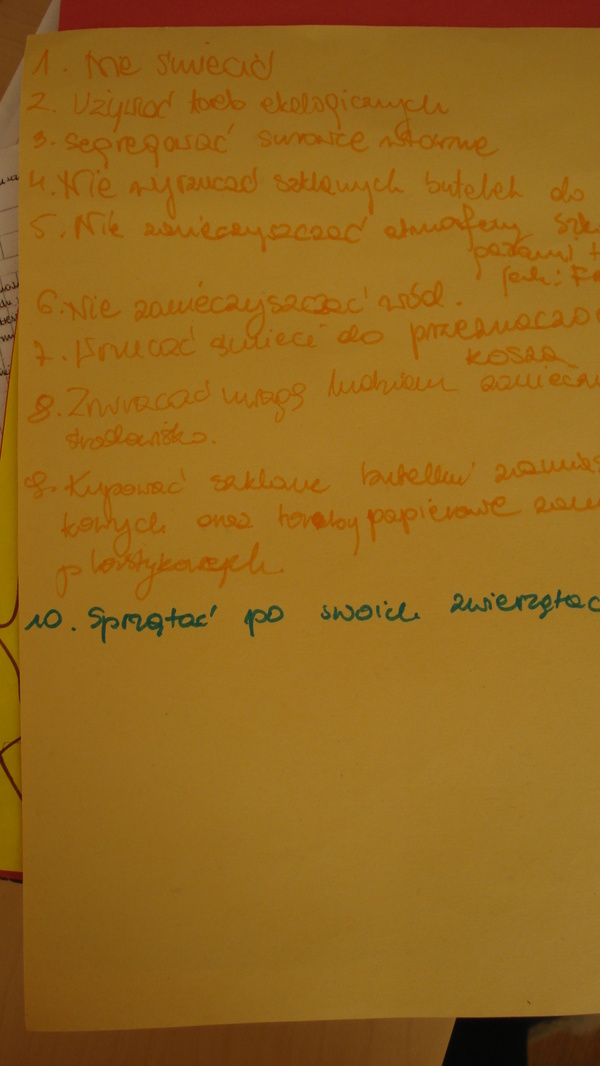 1. Nie śmiecić
2. Używać toreb ekologicznych
3. Segregować surowce wtórne
4. Nie wyrzucać szklanych butelek do
5. Nie zanieczyszczać atmosfery
6. Nie zanieczyszczać wód.
7. Wrzucać śmieci do
kosza
8. Zwracać uwagę ludziom
środowisko.
9. Kupować szklane butelki
kowych oraz torby papierowe
plastykowych.
10. Sprzątać po swoich zwierzętac